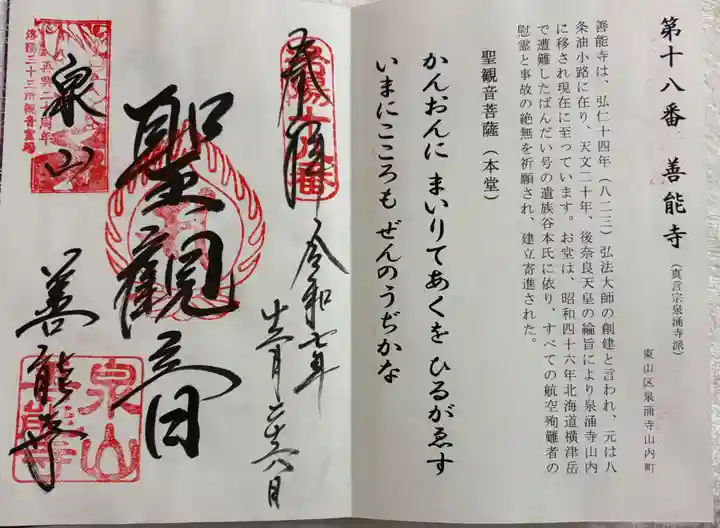 第十八番 善能寺(真言宗泉涌寺派)
東山区泉涌寺山内町
善能寺は、弘仁十四年(八二三)弘法大師の創建と言われ、元は八
条油小路に在り、天文二十年、後奈良天皇の綸旨により泉涌寺山内
に移され現在に至っています。お堂は、昭和四十六年北海道横津岳
で遭難したばんだい号の遺族谷本氏に依り、すべての航空殉難者の
慰霊と事故の絶無を祈願され、建立寄進された。
聖観音菩薩(本堂)
かんおんに まいりてあくを ひるがゑす
いまにこころも ぜんのうぢかな
洛陽十八番
奉拝
令和七年
十二月二十六日
聖観音
再興二十周年
洛陽三十三所観音霊場
泉山
善能寺
泉山
善能寺